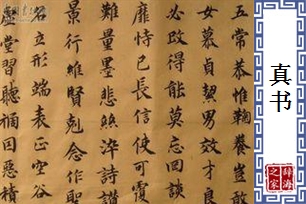 真书
五常恭惟鞠養豈敢
女慕貞絜男效才良
必改得能莫忘罔談
靡恃己長信使可覆
難量墨悲絲染詩讚
景行維賢剋念作聖
名立形端表正空谷
虛堂習聽禍因惡積
辞海之家